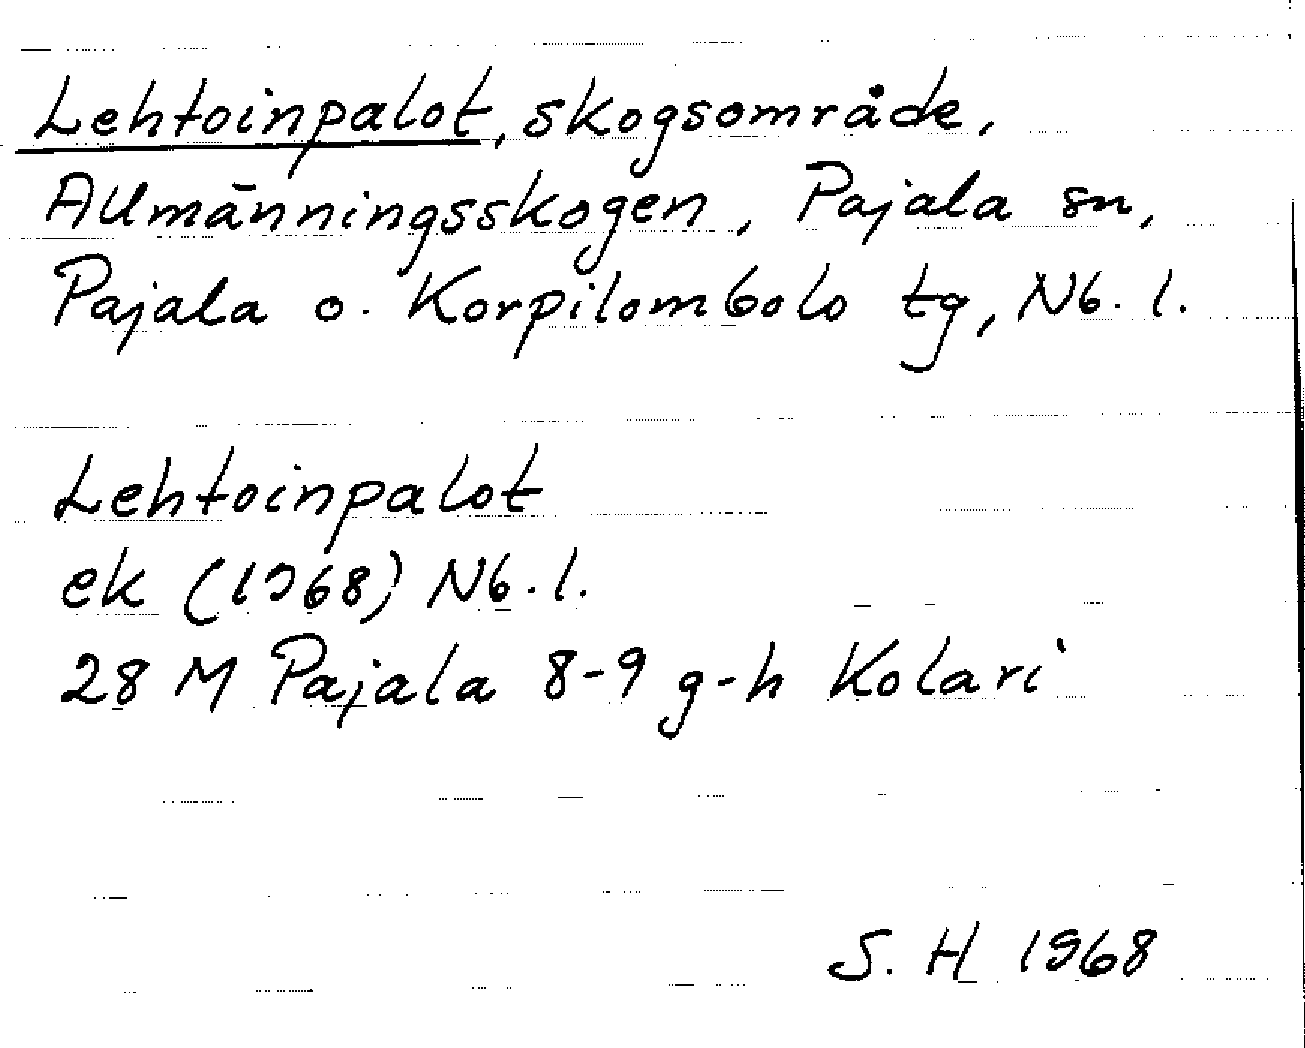 Lehtoinpalot, skogsområde,
Allmänningsskogen, Pajala sn,
Pajala o. Korpilombolo tg, Nb. l.
Lehtoinpalot
ek (1968) Nb. l.
28 M Pajala 8-9 g-h Kolari
S. H 1968